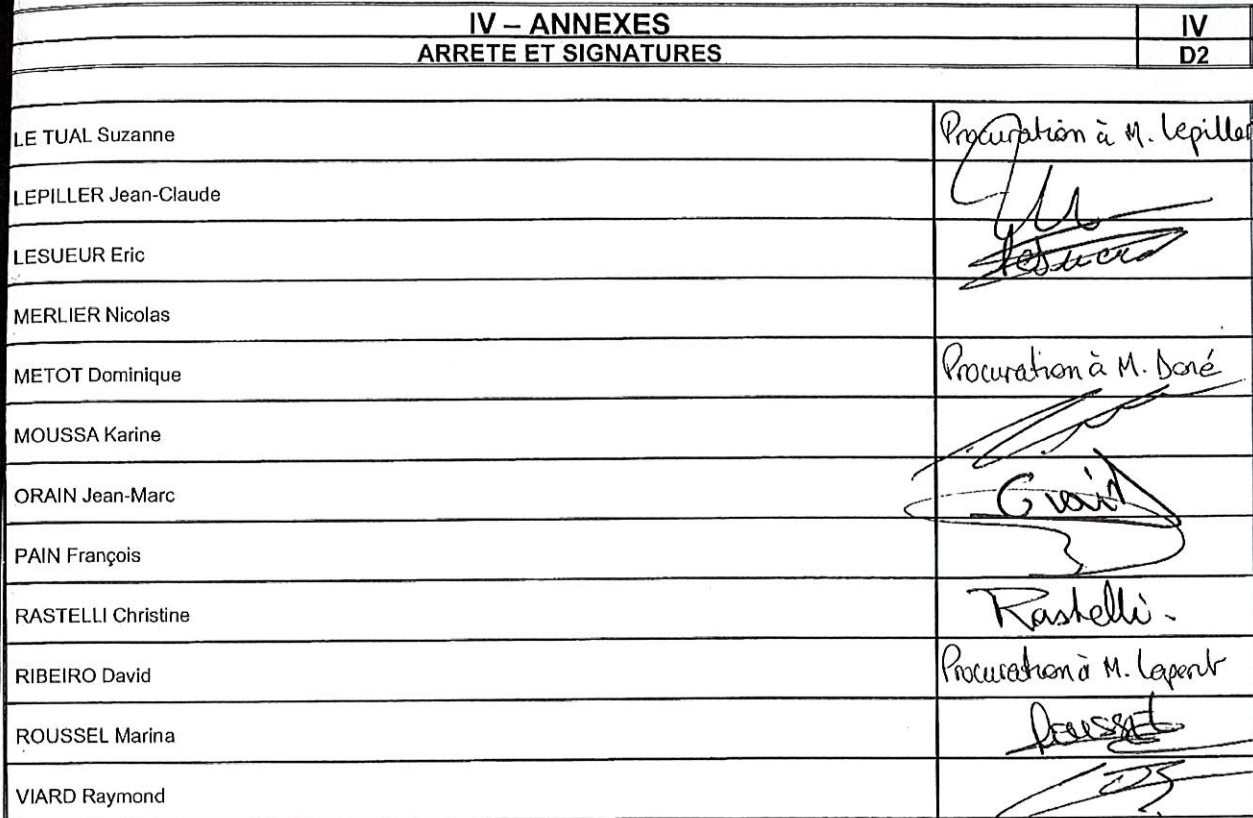 IV – ANNEXES IV
ARRETE ET SIGNATURES D2
LE TUAL Suzanne Procuration à M. Lepiller
LEPILLER Jean-Claude
LESUEUR Eric Lesueur
MERLIER Nicolas
METOT Dominique Procuration à M. Doré
MOUSSA Karine
ORAIN Jean-Marc Orain
PAIN François
RASTELLI Christine Rastelli.
RIBEIRO David Procuration à M.
ROUSSEL Marina Roussel
VIARD Raymond